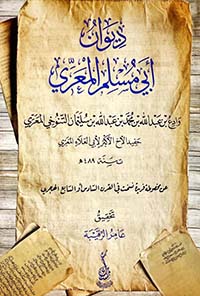 ديوان
أبي مسلم المعري
وادع بن عبد الله بن محمد بن عبد الله بن سليمان التنوخي المعري
حفيد الأخ الأكبر لأبي العلاء المعري
ت سنة ٤٨٩ هـ
عن مخطوطة فريدة نسخت في القرن السادس أو السابع الهجري
تحقيق
عامر الرقيبة